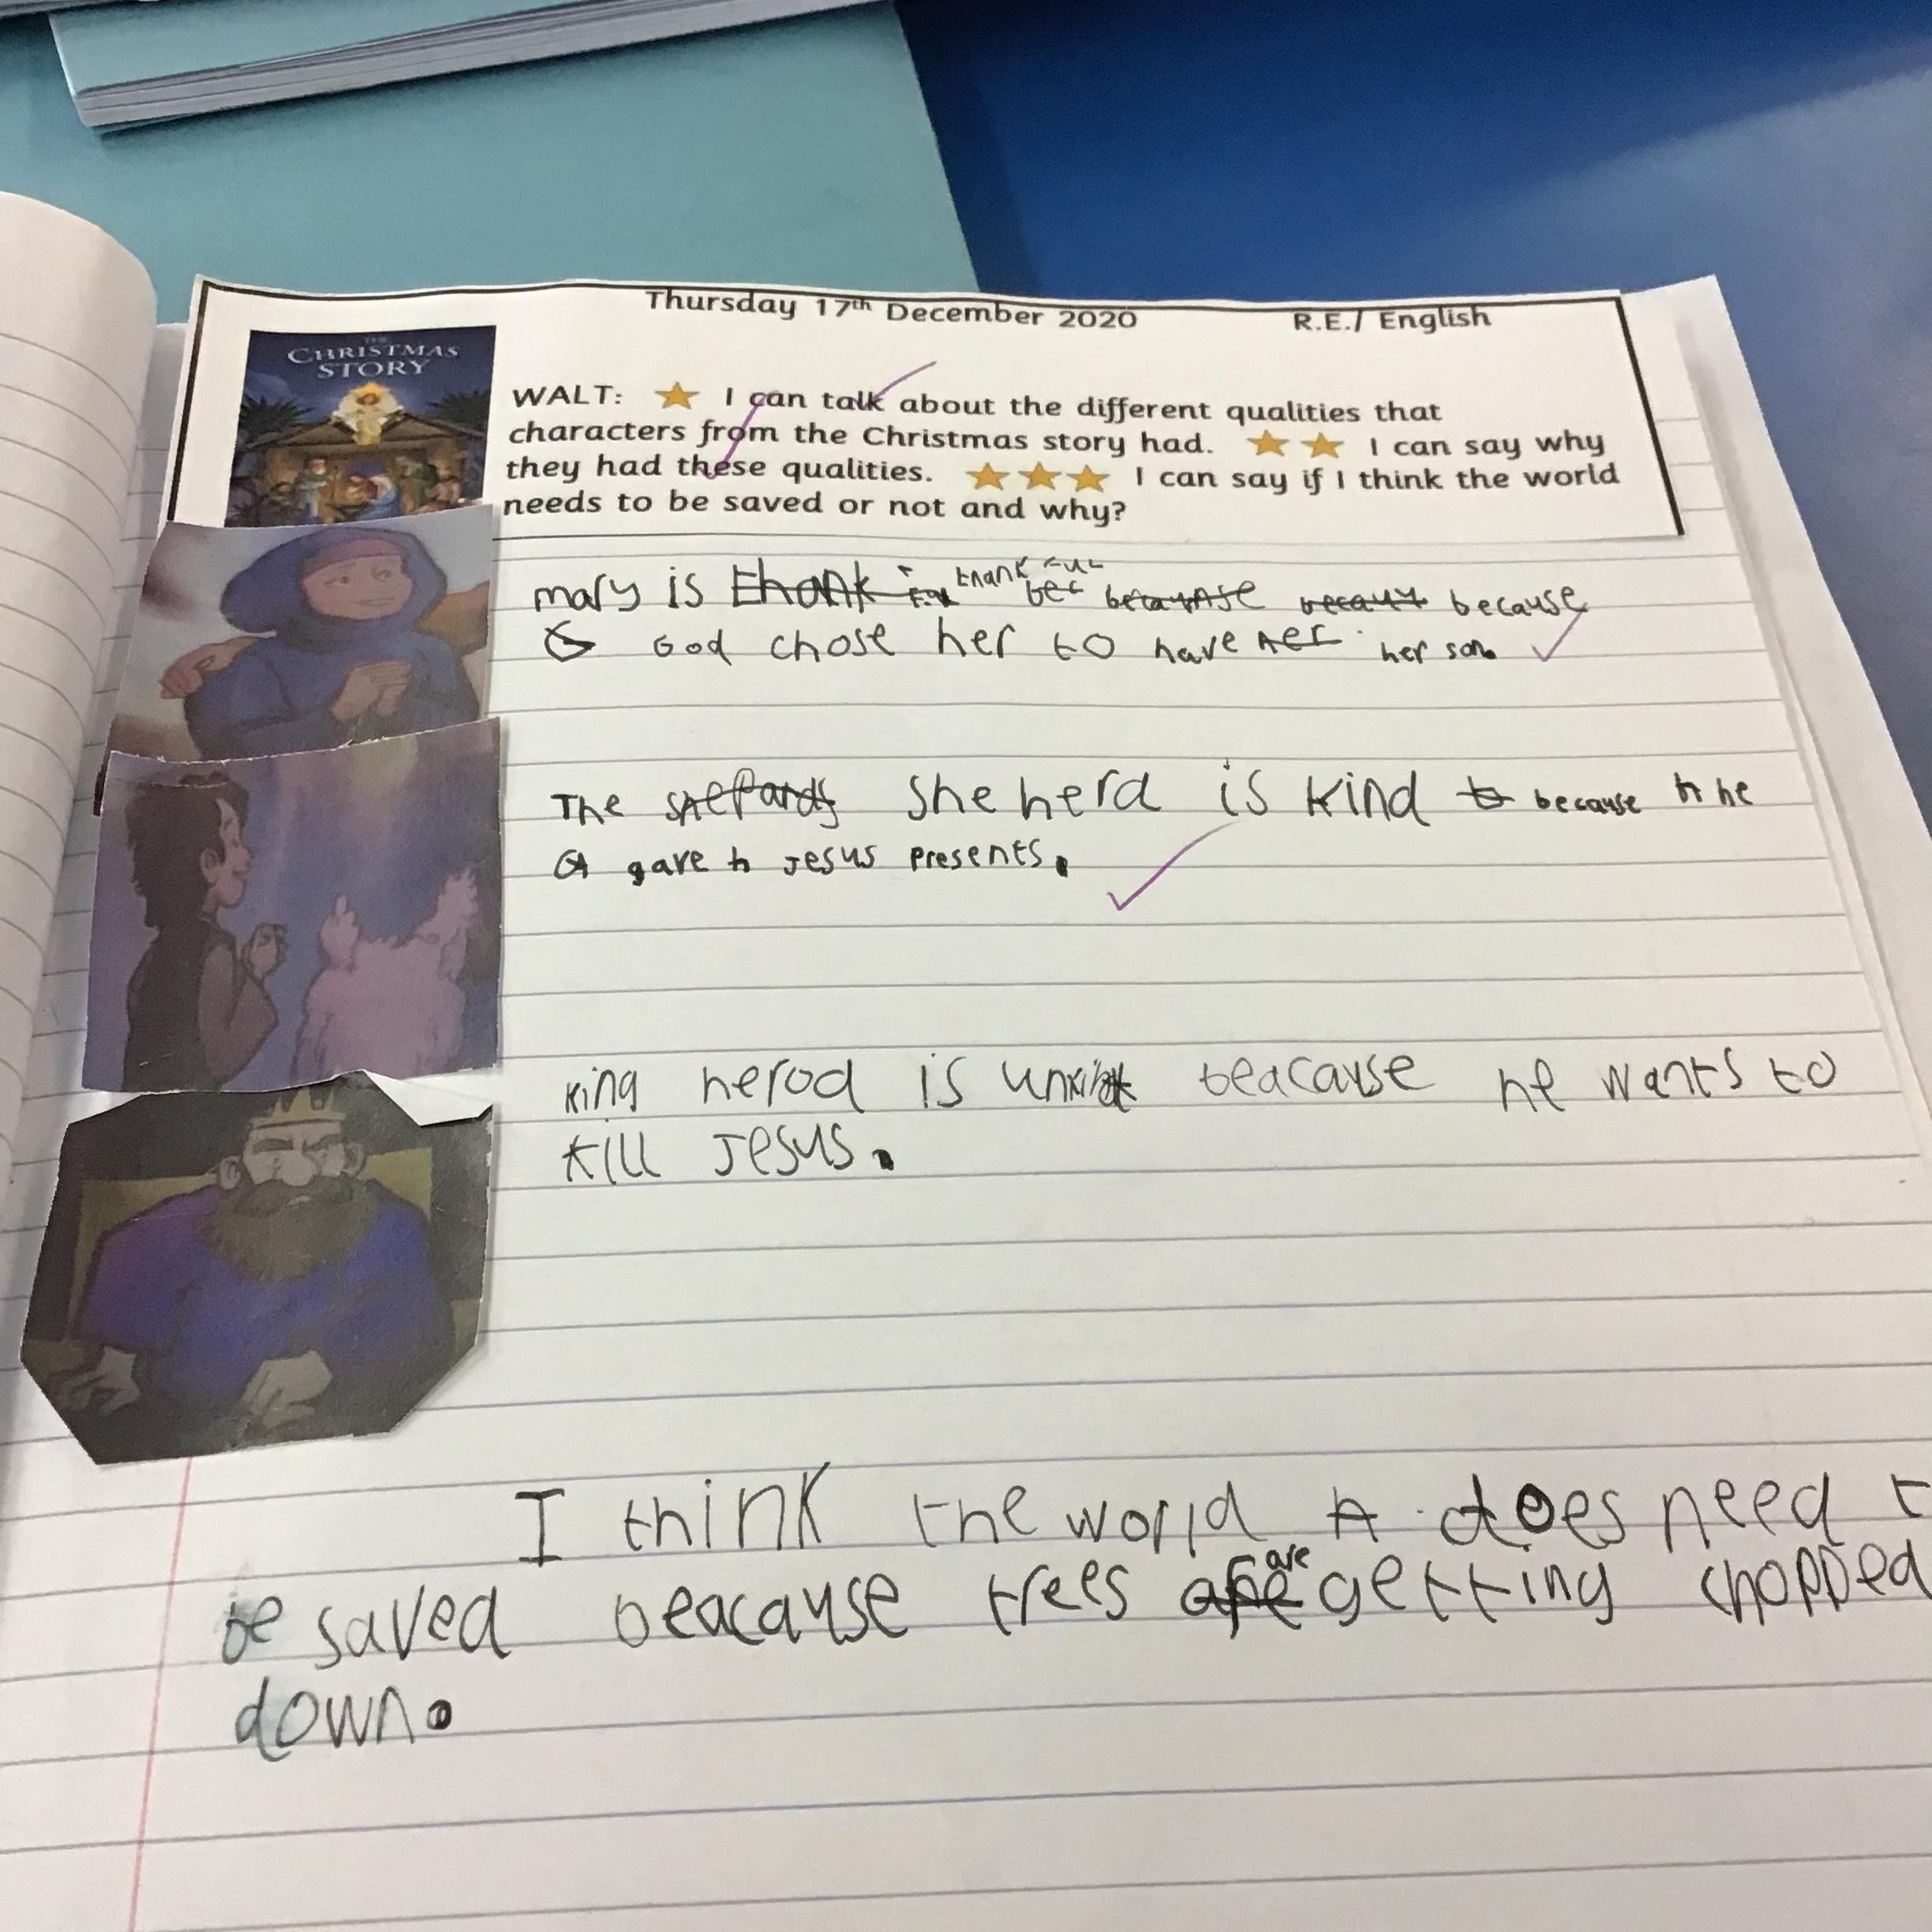 Thursday 17th December 2020 R.E./ English
THE
CHRISTMAS
STORY
WALT: I can talk about the different qualities that
characters from the Christmas story had. I can say why
they had these qualities. I can say if I think the world
needs to be saved or not and why?
mary is thank thankful bec because because
G God chose her to have her her son.
The sheherd is kind because h he
G gave h Jesus presents.
king herod is beacause he wants to
kill Jesus.
I think the world does need t
be saved beacause trees are getting chopped
down.